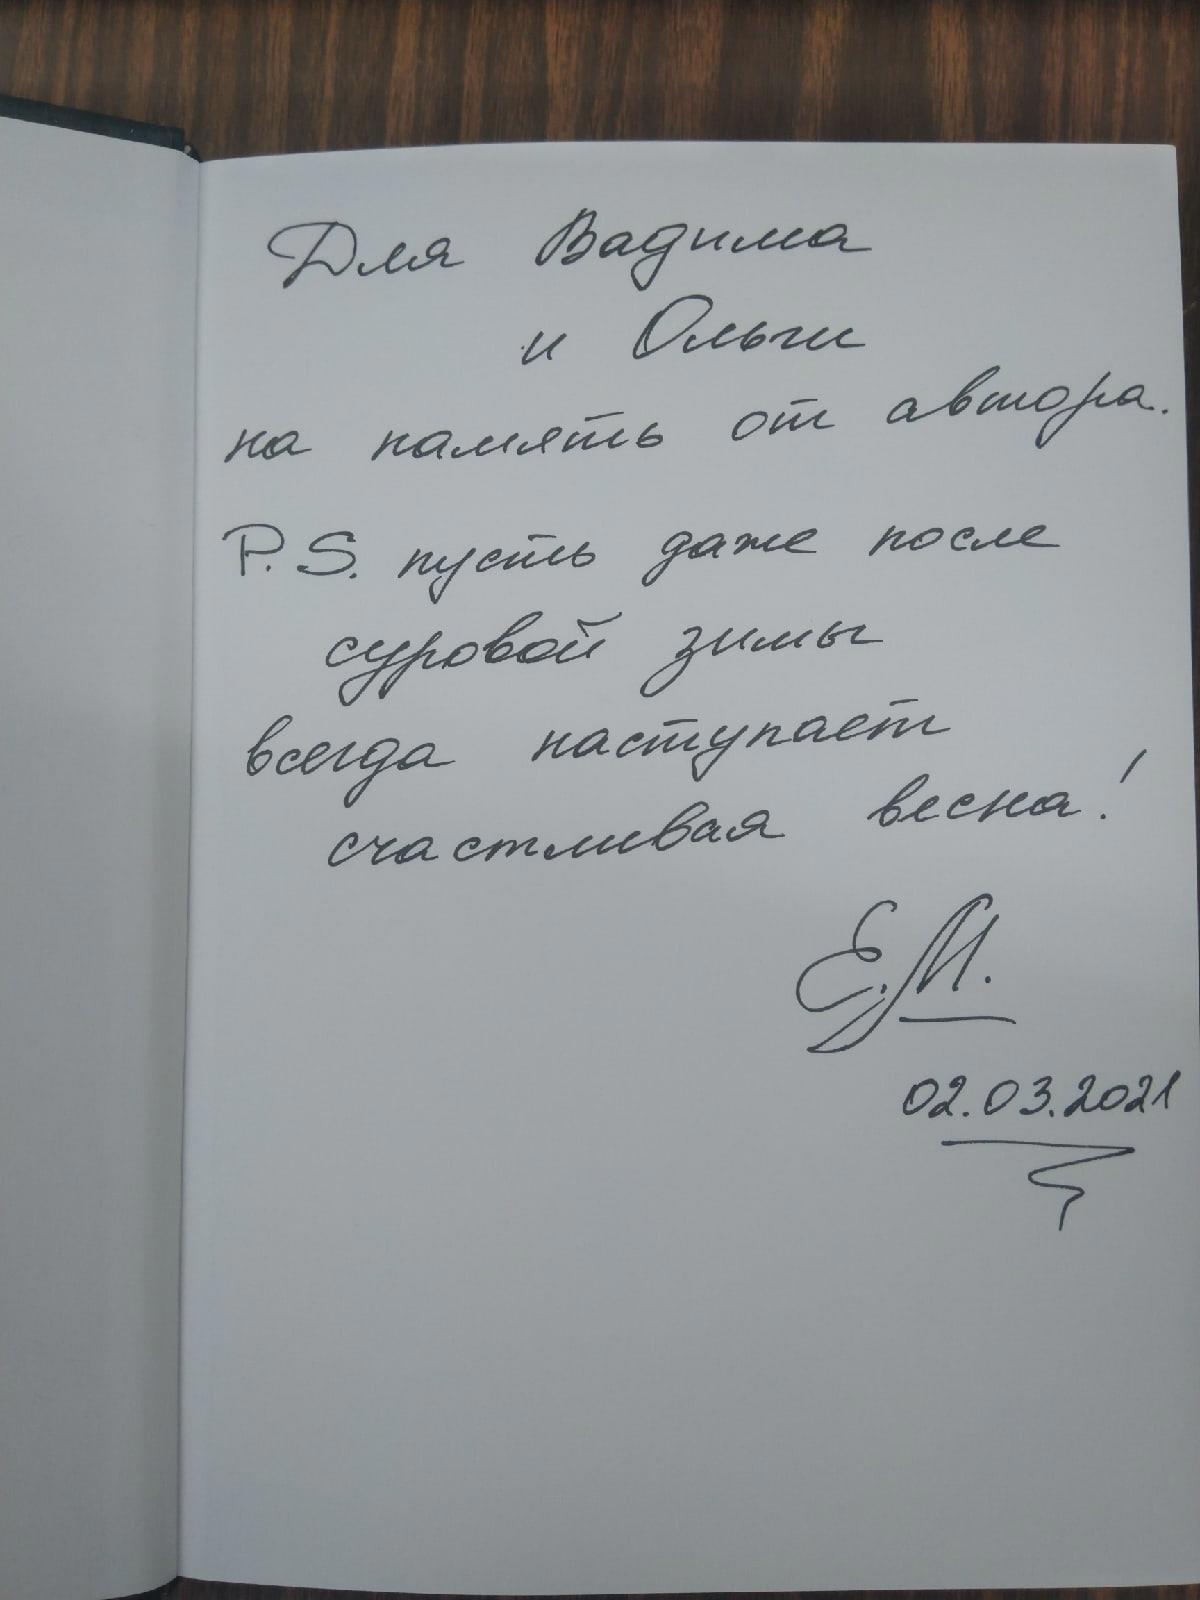 Для Вадима
и Ольги
на память от автора.
P.S. пусть даже после
суровой зимы
всегда наступает
счастливая весна!
Е.М.
02.03.2021